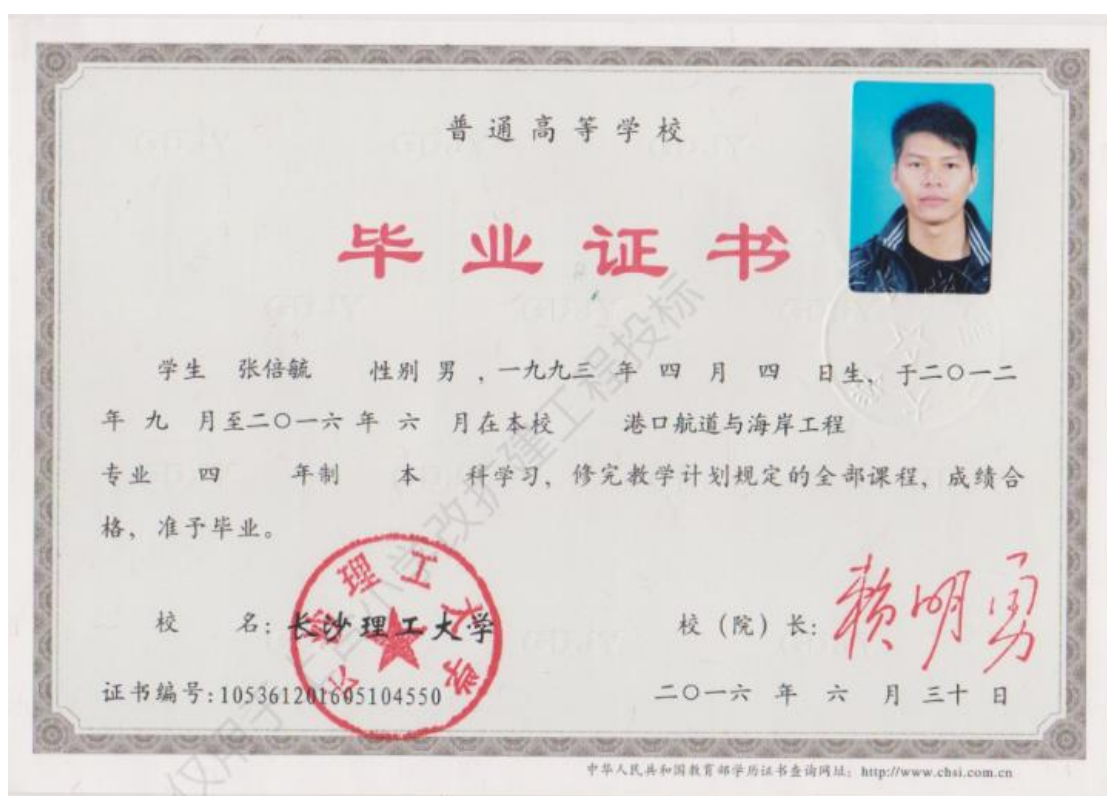 普通高等学校
毕业证书
学生 张倍毓 性别 男 ，一九九三 年 四 月 四 日生，于二〇一二
年 九 月至二〇一六 年 六 月在本校 港口航道与海岸工程
专业 四 年制 本 科学习，修完教学计划规定的全部课程，成绩合
格，准予毕业。
校 名：长沙理工大学
校（院）长：赖明勇
证书编号：105361201605104550
二〇一六 年 六 月 三十 日
中华人民共和国教育部学历证书查询网址：http://www.chsi.com.cn